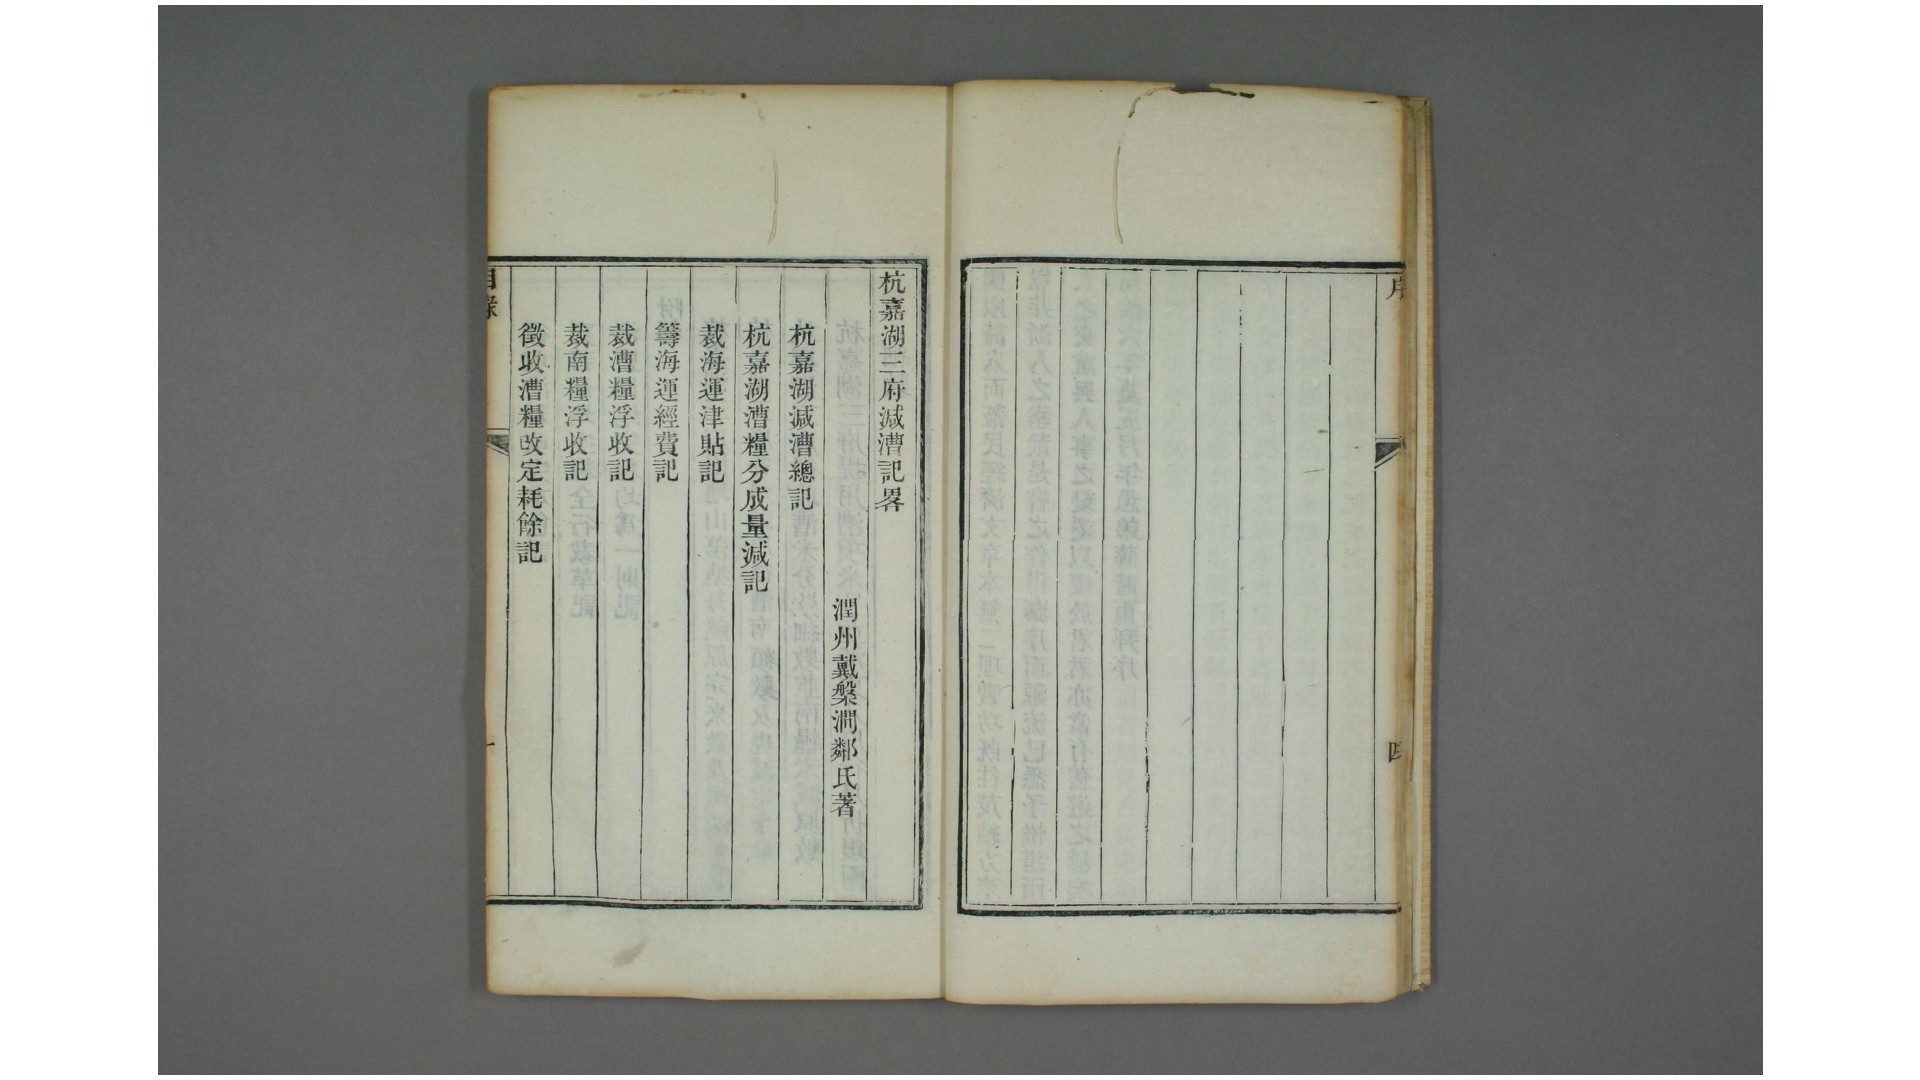 序
四
杭嘉湖三府減漕記畧
潤州戴槃澗鄰氏著
杭嘉湖減漕總記
杭嘉湖漕糧分成量減記
裁海運津貼記
籌海運經費記
裁漕糧浮收記
裁南糧浮收記
徵收漕糧改定耗餘記
目錄
一